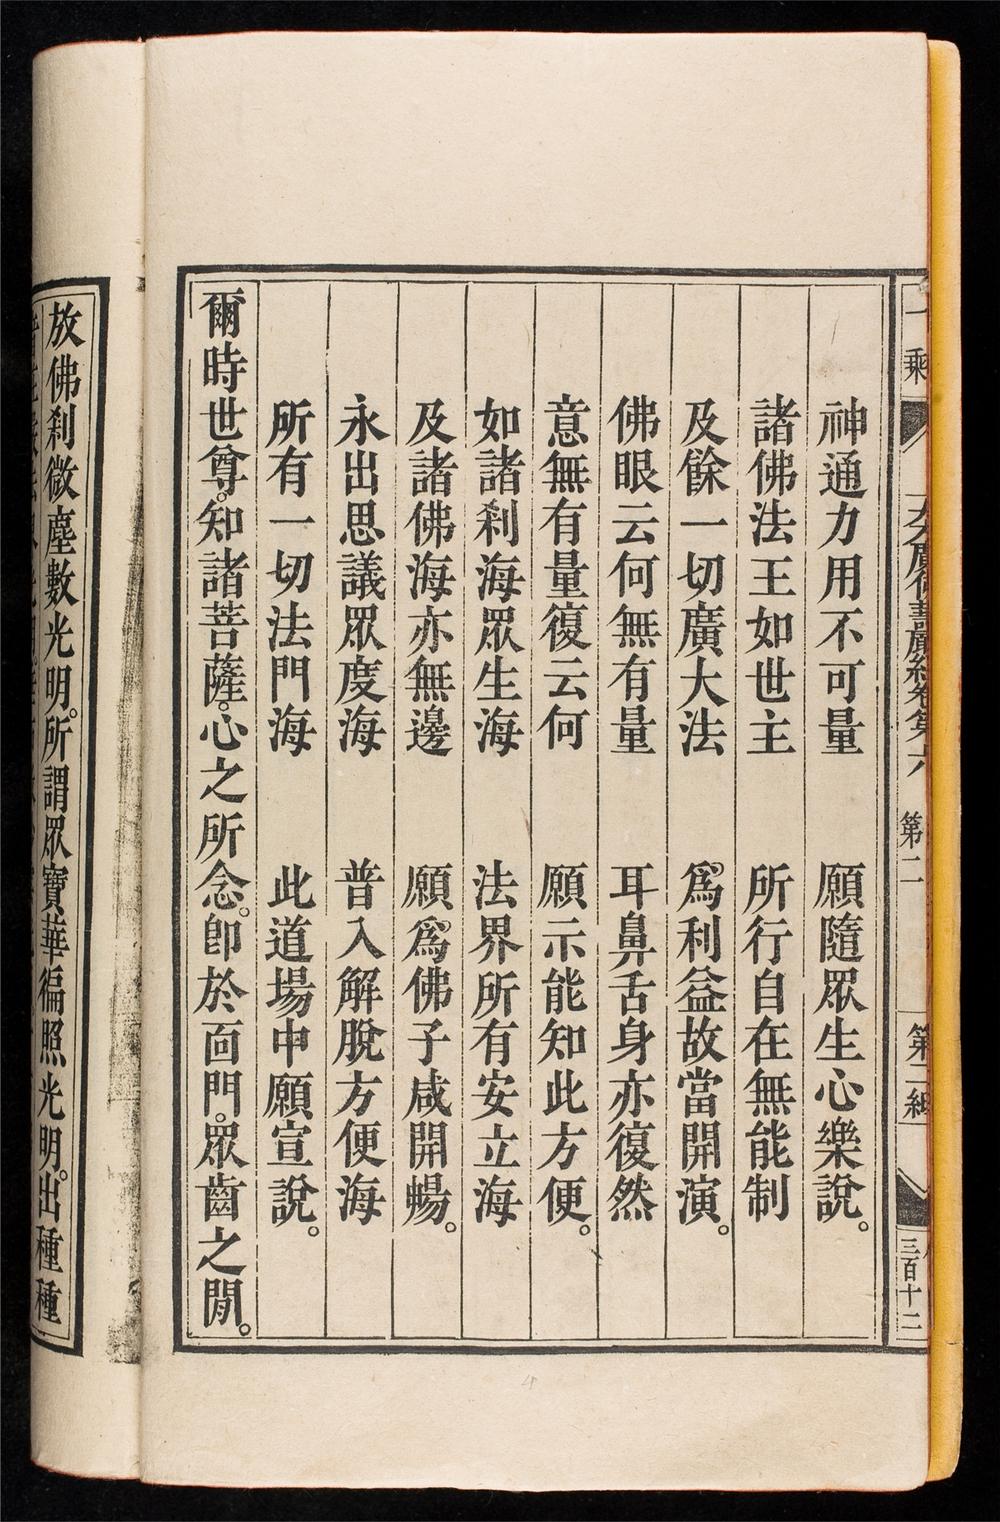 一乘
大方廣佛華嚴經卷第六
第二
第二綱
三百十二
神通力用不可量　願隨眾生心樂說。
諸佛法王如世主　所行自在無能制
及餘一切廣大法　爲利益故當開演。
佛眼云何無有量　耳鼻舌身亦復然
意無有量復云何　願示能知此方便。
如諸刹海眾生海　法界所有安立海
及諸佛海亦無邊　願爲佛子咸開暢。
永出思議眾度海　普入解脫方便海
所有一切法門海　此道場中願宣說。
爾時世尊。知諸菩薩。心之所念。卽於面門。眾齒之閒。
放佛刹微塵數光明。所謂眾寶華徧照光明。出種種